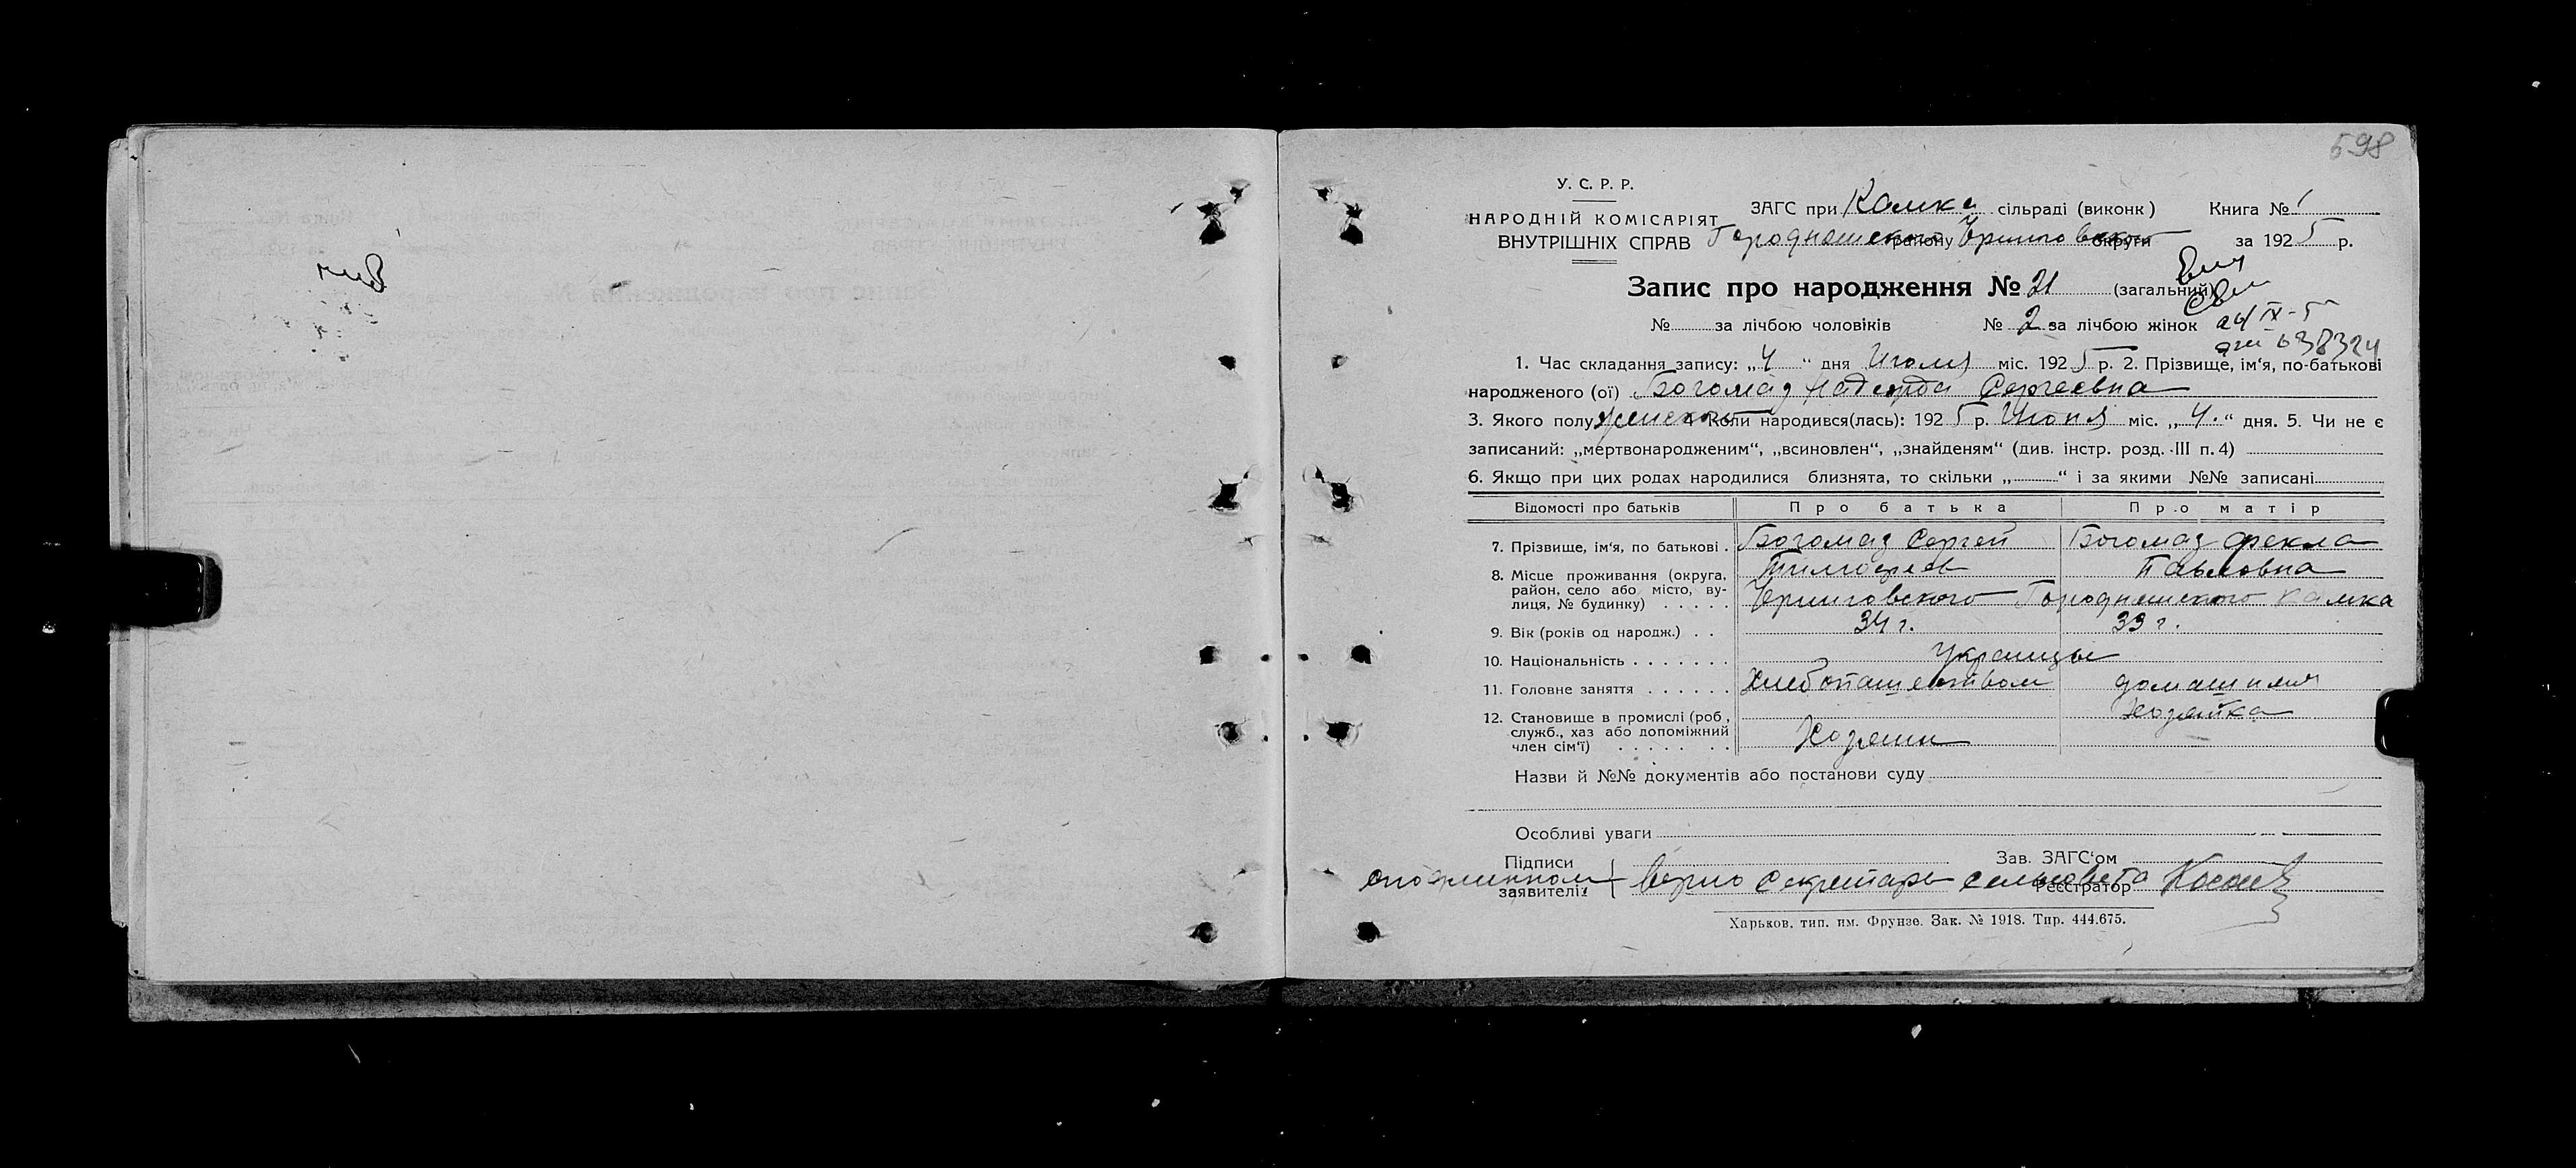 598
У. С. Р. Р.
НАРОДНІЙ КОМІСАРІЯТ
ВНУТРІШНІХ СПРАВ
ЗАГС при Камка сільраді (виконк) Книга № 1
Городнянского району Черниговского округи за 1925 р.
Запис про народження № 21 (загальний)
№ за лічбою чоловіків № 2 за лічбою жінок
638324
1. Час складання запису: „4“ дня Июля міс. 1925 р. 2. Прізвище, ім‘я, по-батькові
народженого (ої) Богомаз Надежда Сергеевна
3. Якого полу женского 4 Коли народився(лась): 1925 р. Июня міс. „4.“ дня. 5. Чи не є
записаний: „мертвонародженим“, „всиновлен“, „знайденям“ (див. інстр. розд. III п. 4)
6. Якщо при цих родах народилися близнята, то скільки „ “ і за якими №№ записані
Відомості про батьків Про батька Про матір
7. Прізвище, ім‘я, по батькові . Богомаз Сергей Богомаз Фекла
Тимофеев Павловна
8. Місце проживання (округа,
район, село або місто, ву-
лиця, № будинку) . . . . . Черниговского Городнянского Камка
9. Вік (років од народж.) . . 34 г. 33 г.
10. Національність . . . . . . . Украинцы
11. Головне заняття . . . . . . Хлебопашеством домашняя
хозяйка
12. Становище в промислі (роб.,
служб., хаз або допоміжний
член сім‘ї) . . . . . . . Хозяин
Назви й №№ документів або постанови суду
Особливі уваги
Підписи Зав. ЗАГС‘ом
заявителів Реєстратор
с подлинном верно Секретарь сельсовета
Харьков, тип. им. Фрунзе. Зак. № 1918. Тир. 444.675.